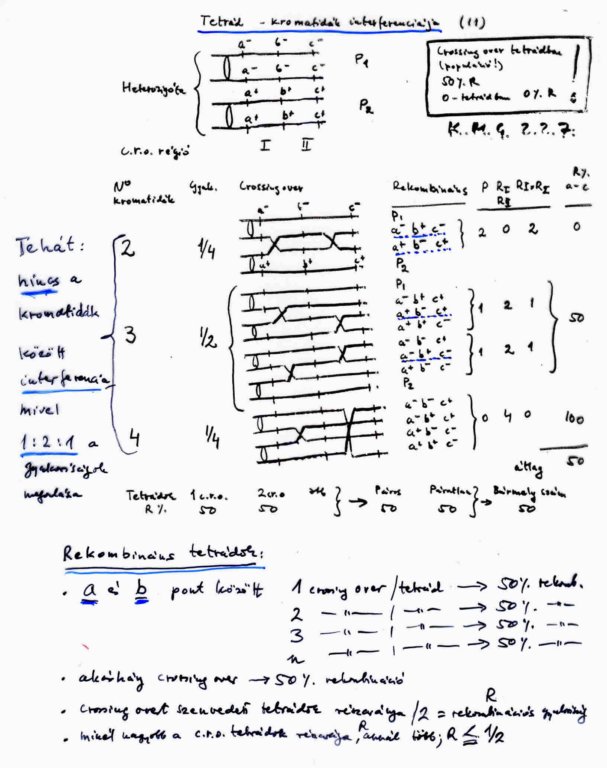 Tetrád - kromatidák interferenciája (11)
a- b- c-
a- b- c-
P1
Heterozigóta
a+ b+ c+
P2
a+ b+ c+
c.r.o. régió I II
Crossing over tetrádban
(populáció!)
50% R
0-tetrádban 0% R
!
K. M. G. ? . ? . 7.
No kromatidák
Gyak.
Crossing over
Rekombináns
P RI RII RI+RII
R% a-c
Tehát:
nincs a
kromatidák
között
interferencia
mivel
1:2:1 a
gyakoriságok
megoszlása
2 1/4
a- b- c-
a+ b+ c+
P1
a- b+ c-
a+ b- c+
P2
2 0 2 0
3 1/2
P1
a- b+ c+
a+ b- c-
a+ b+ c-
1 2 1
a- b- c+
a- b+ c-
a+ b- c-
1 2 1
50
P2
4 1/4
a- b- c+
a- b+ c+
a+ b- c-
a+ b+ c-
0 4 0 100
átlag 50
Tetrádok 1 c.r.o. 2 c.r.o. → Páros Páratlan → Bármely szám
R% 50 50 50 50 50
Rekombináns tetrádok:
• a és b pont között 1 crossing over/tetrád → 50% rekomb.
2 —"— / —"— → 50% —"—
3 —"— / —"— → 50% —"—
n —"— / —"— → 50% —"—
• akárhány crossing over → 50% rekombináció
• Crossing overt szenvedett tetrádok részaránya /2 = rekombinációs gyakoriság R
• minél nagyobb a c.r.o. tetrádok részaránya, R annál több; R ≦ 1/2